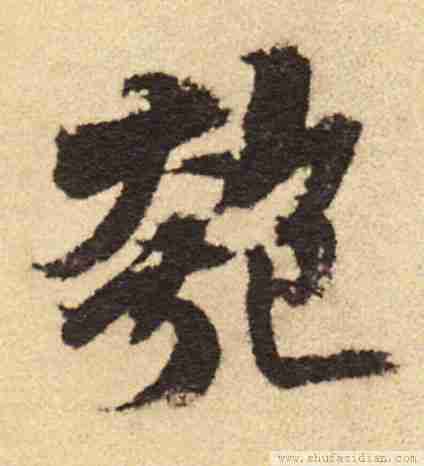 匏
www.shufazidian.com